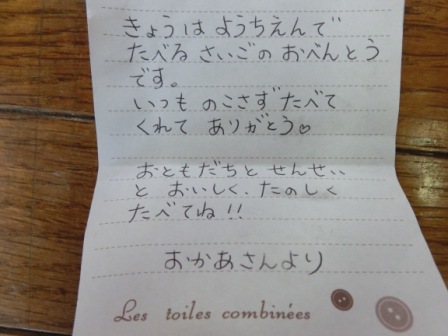 きょうは ようちえんで
たべる さいごの おべんとう
です。
いつも のこさず たべて
くれて ありがとう♡
おともだちと せんせい
と おいしく、たのしく
たべてね!!
おかあさんより
Les toiles combinées